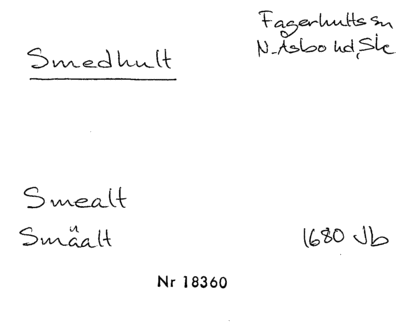 Smedhult
Fagerhults sn
N. Åsbo hd, Skå
Smealt
Smäalt 1680 Jb
Nr 18360